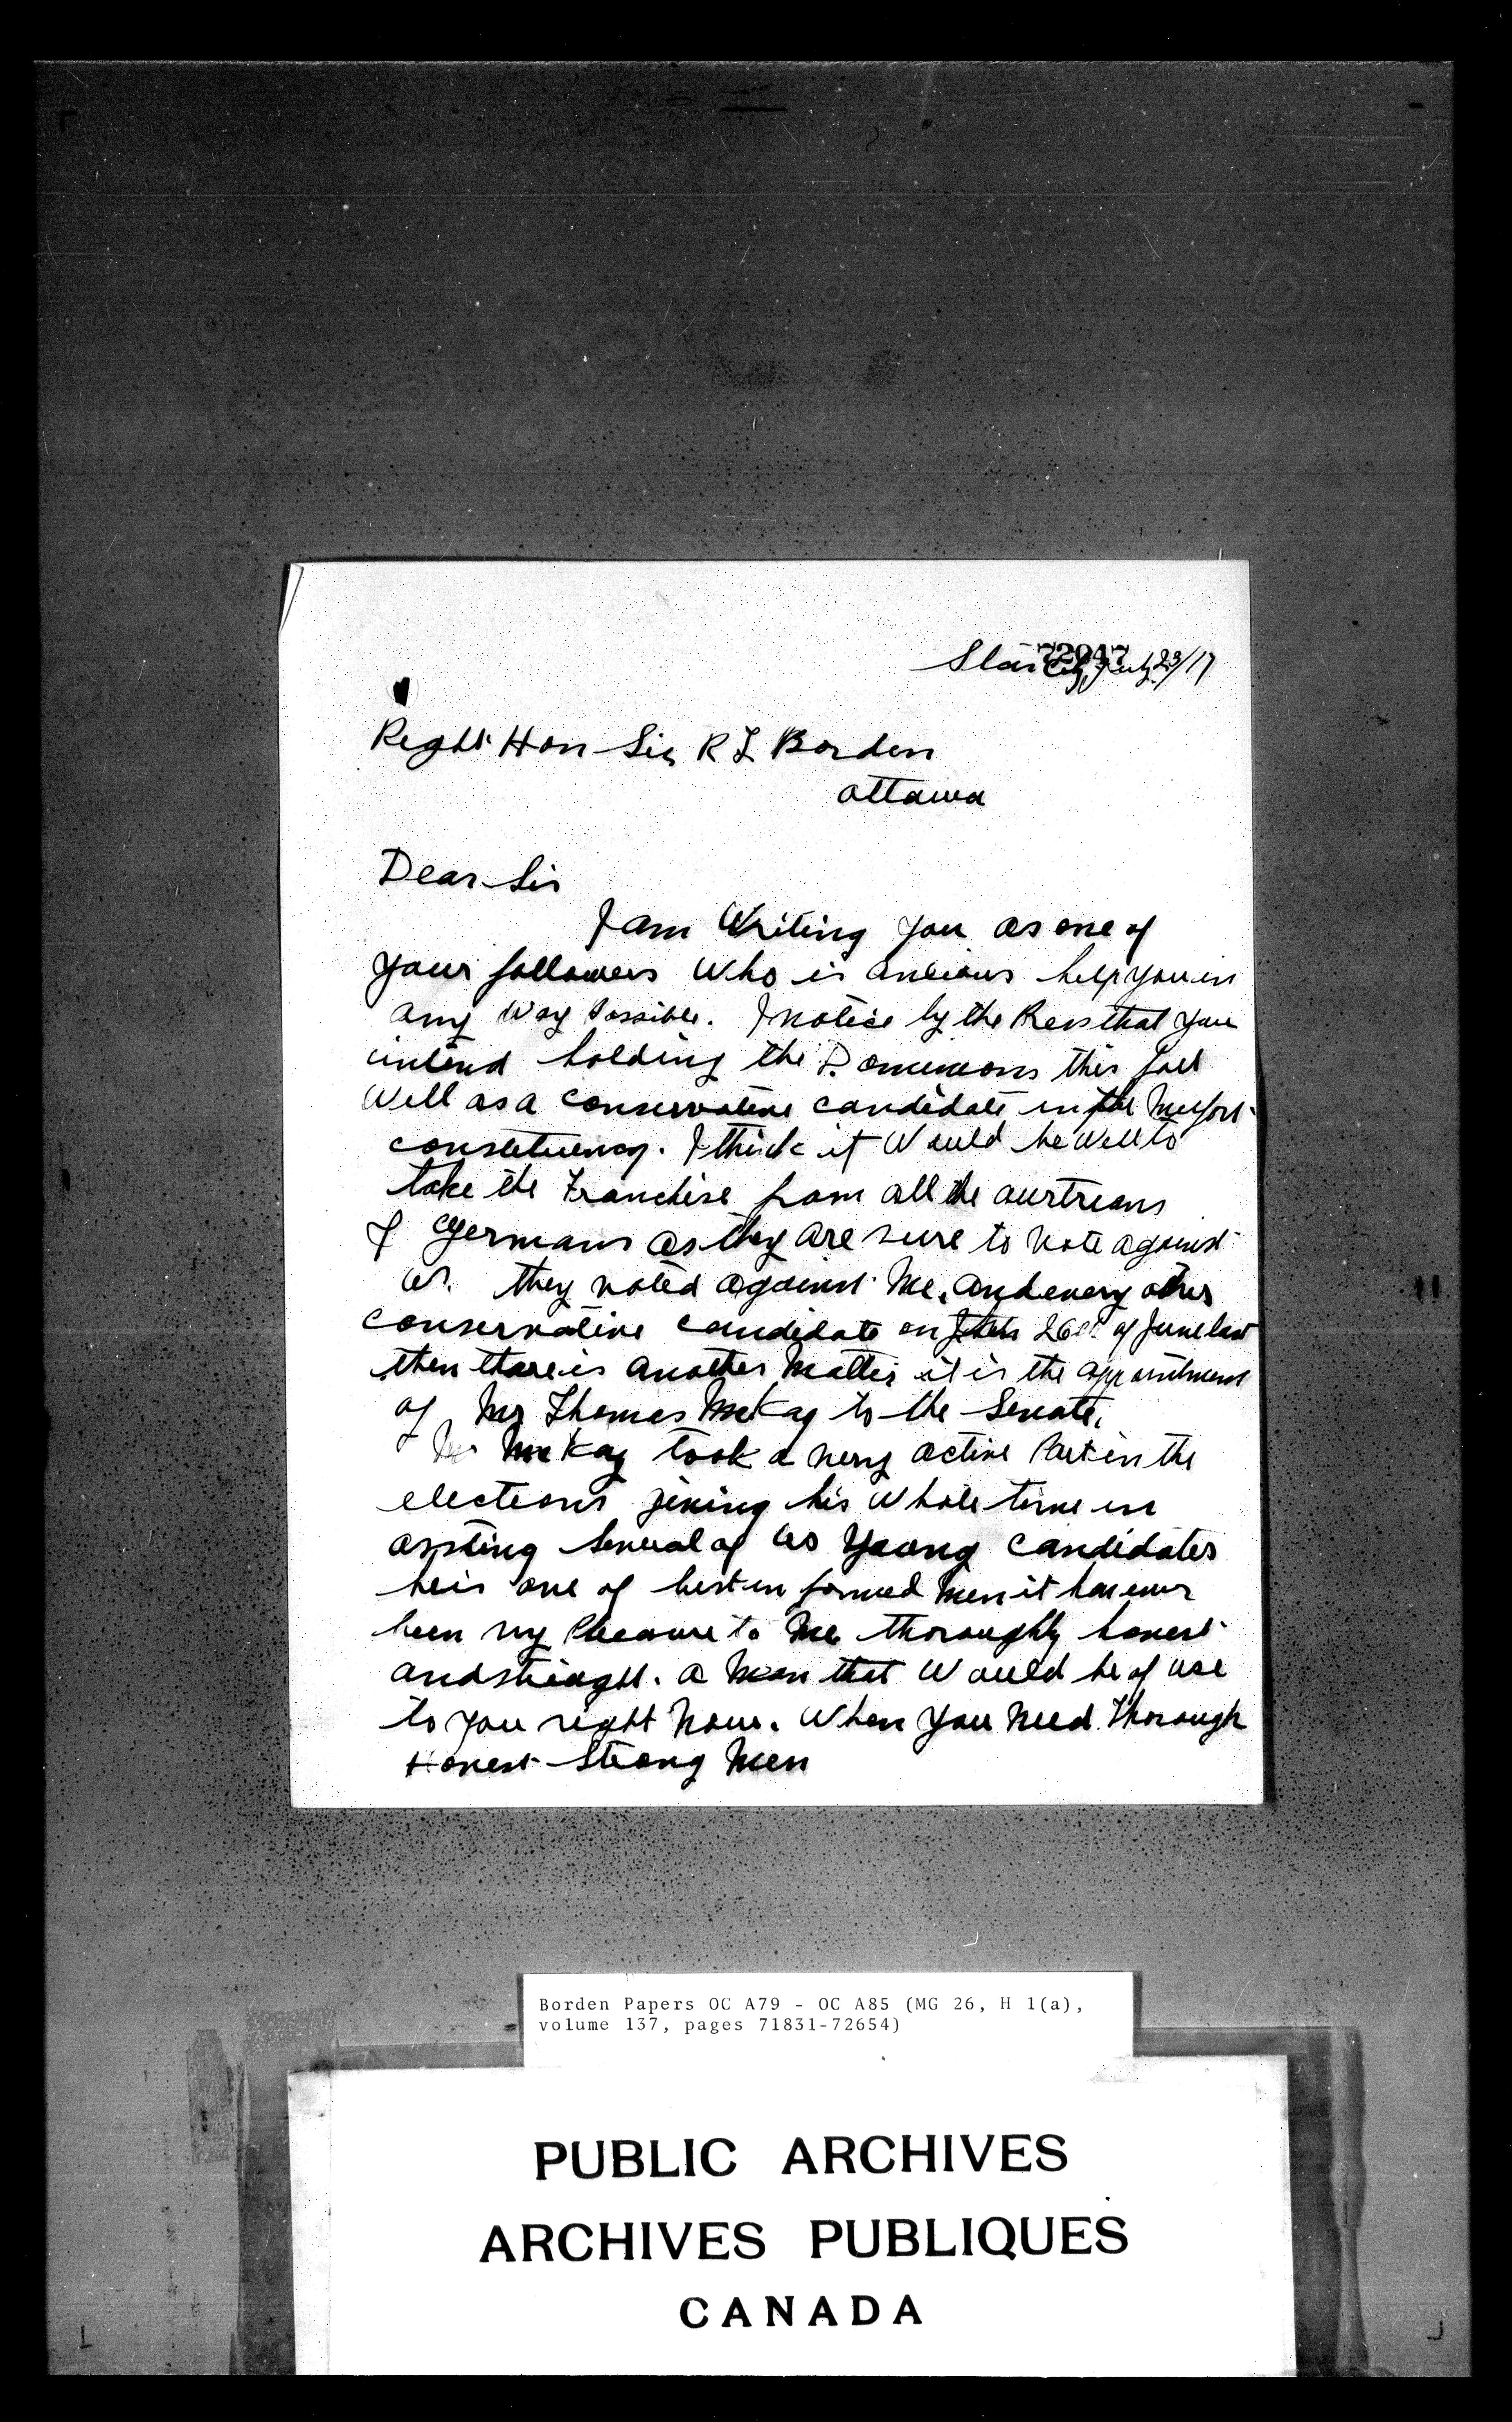 72047
Star City, July 23/17
Right Hon Sir R L Borden
Ottawa
Dear Sir
I am Writing you as one of
your followers Who is anxious help you in
any Way Possible. I notice by the Press that you
intend holding the Dominions this fall
Well as a conservative candidate in the Melfort
constetuency. I think it Would be Well to
take the Franchise from all the austrians
& Germans as they are sure to vote against
us. they voted against Me. and every other
conservative candidate on 26th of June last
then there is another Matter it is the appointment
of Mr Thomas McKay to the Senate.
Mr McKay took a very active Part in the
elections giving his Whole time in
assting several of us Young candidates
he is one of best in formed Men it has ever
been my Pleasure to Me thoroughly honest
and straight. a Man that Would be of use
to you right Now. When you Need Thorough
Honest Strong Men
Borden Papers OC A79 - OC A85 (MG 26, H 1(a),
volume 137, pages 71831-72654)
PUBLIC ARCHIVES
ARCHIVES PUBLIQUES
CANADA